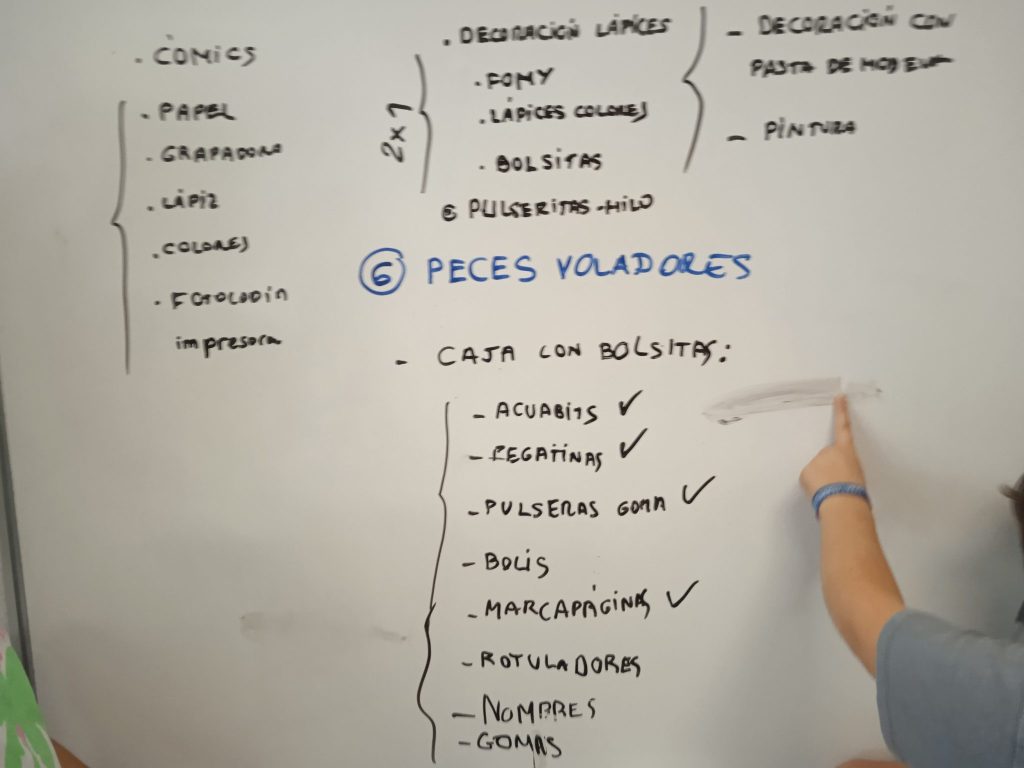 · CÓMICS
· PAPEL
· GRAPADORA
· LÁPIZ
· COLORES
impresora
· DECORACIÓN LÁPICES
2x1
· FOMY
· LÁPICES COLORES
· BOLSITAS
PULSERITAS-HILO
- DECORACIÓN CON
PASTA DE
- PINTURA
6 PECES VOLADORES
- CAJA CON BOLSITAS:
- ACUABITS ✓
- PEGATINAS ✓
- PULSERAS GOMA ✓
- BOLIS
- MARCAPÁGINAS ✓
- ROTULADORES
- NOMBRES
- GOMAS